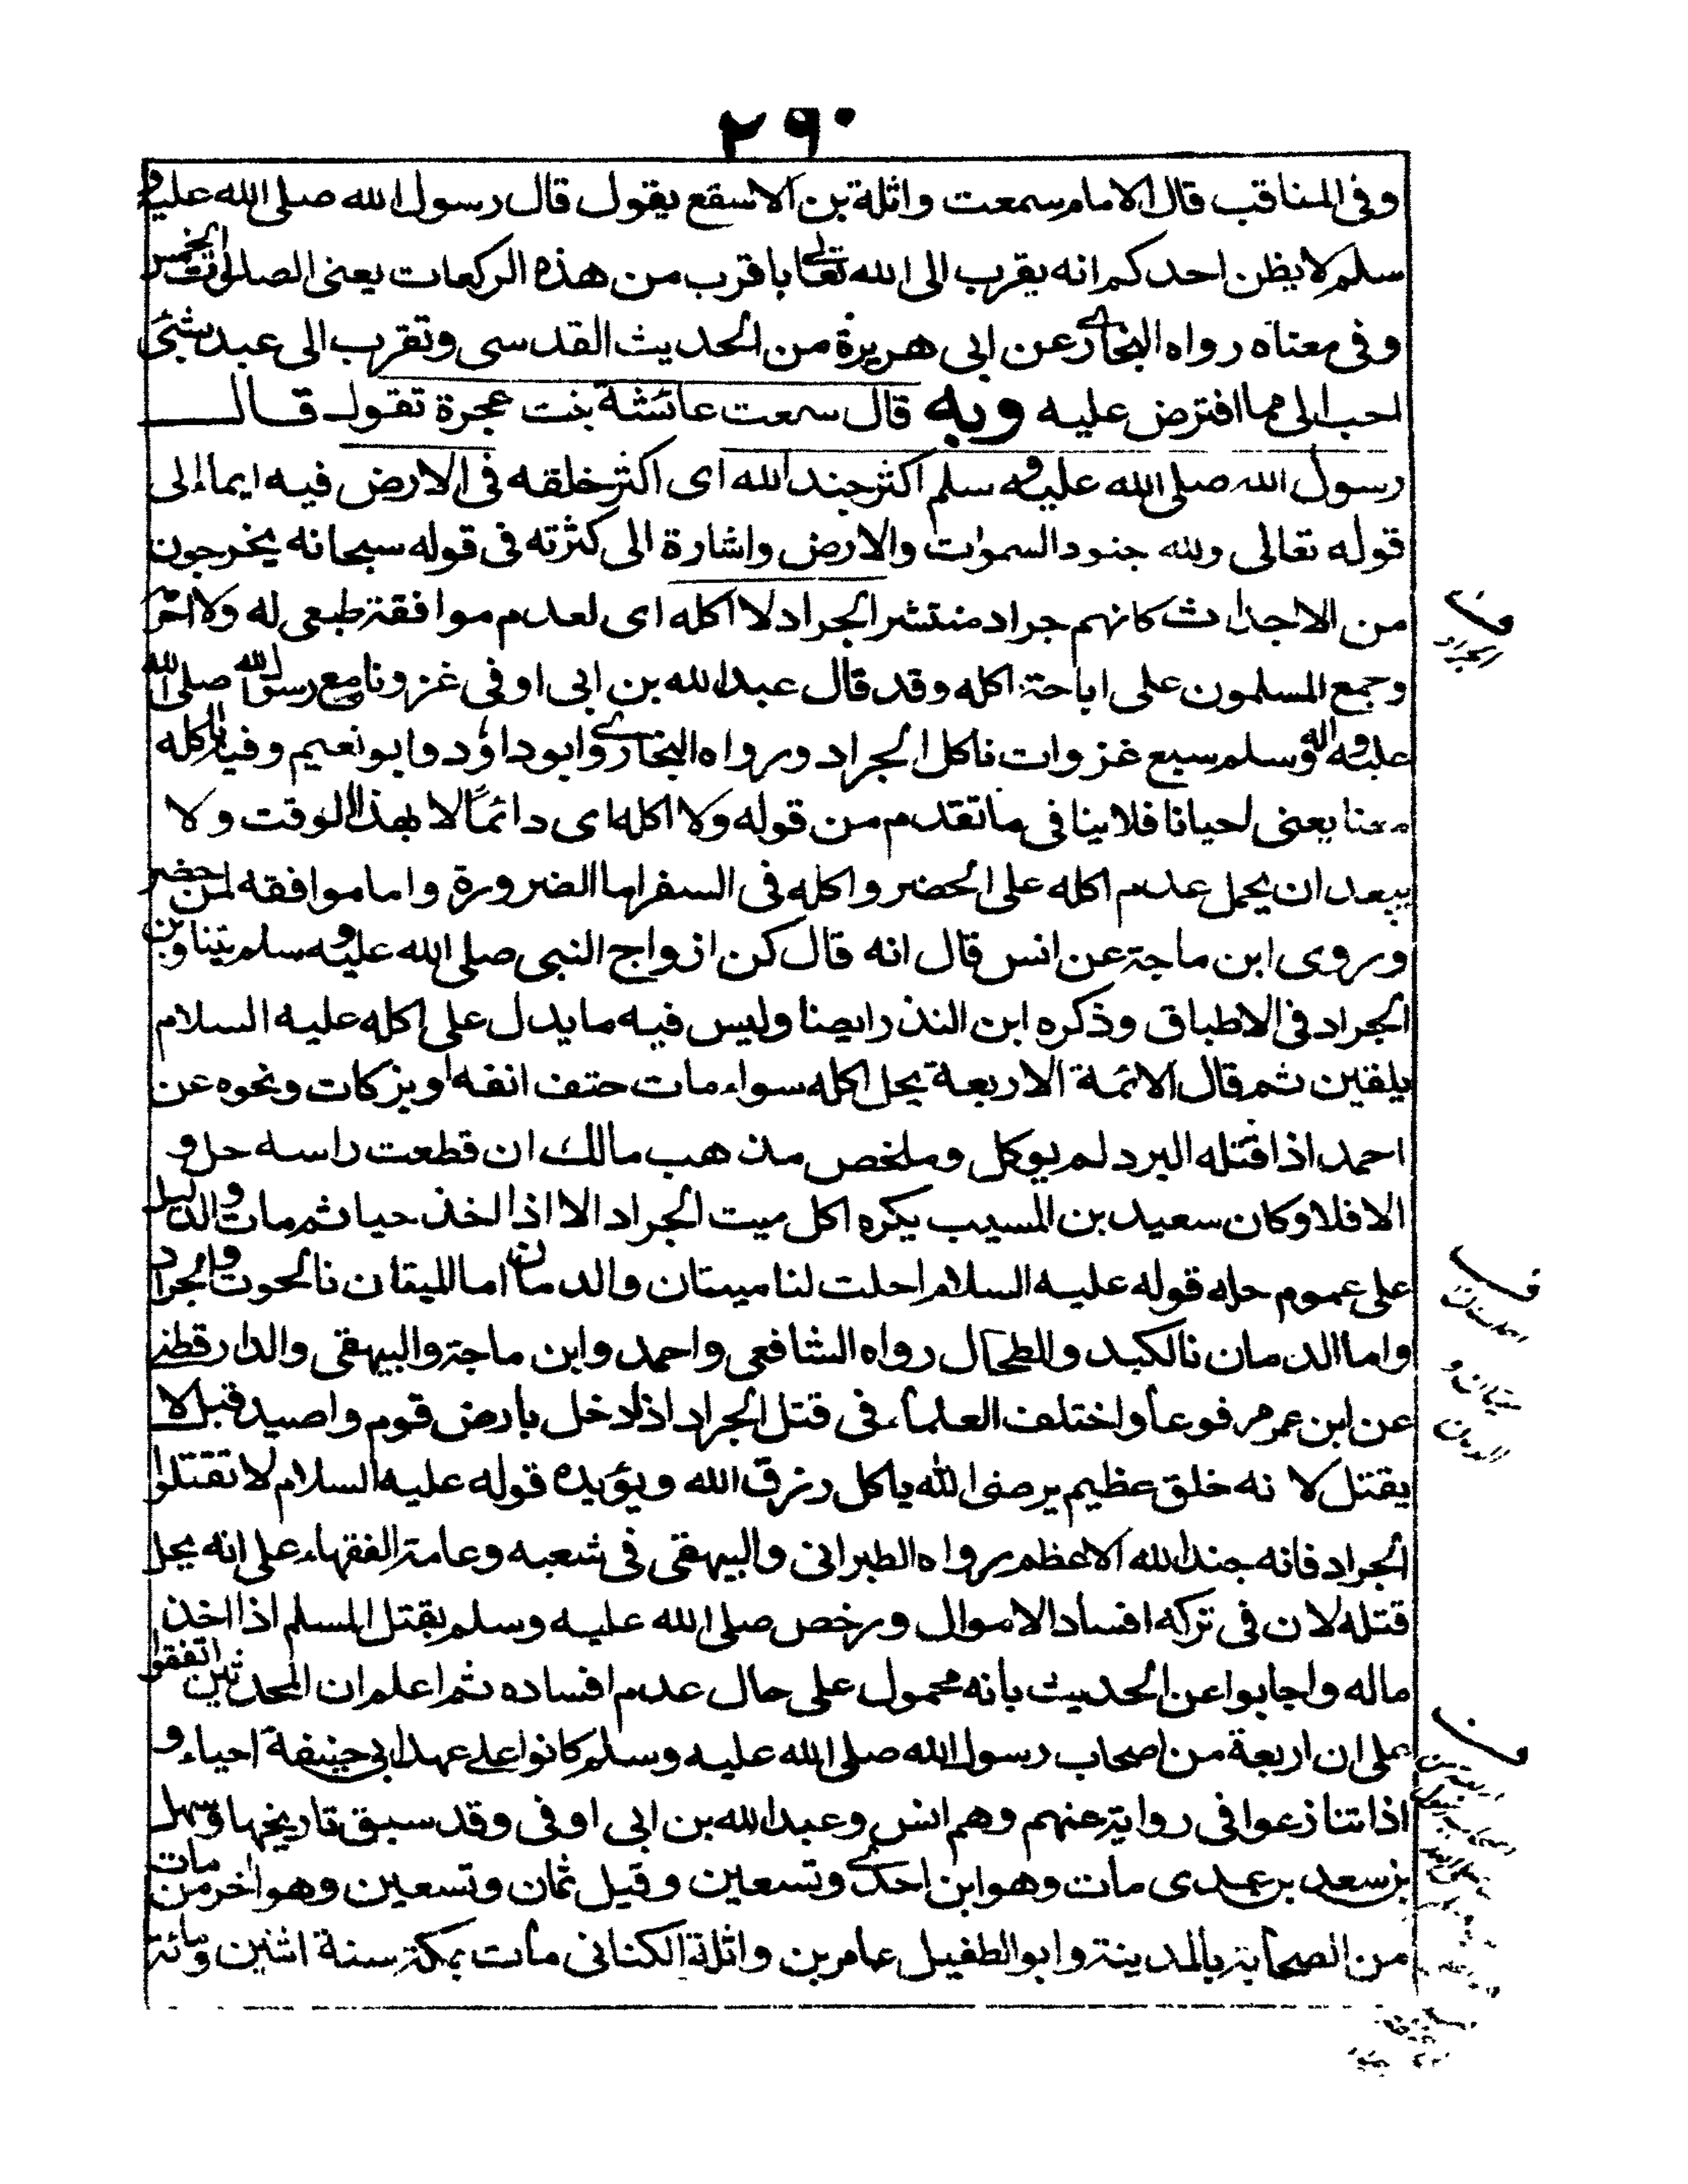 ۲۹۰
وفى المناقب قال الامام سمعت واثلة بن الاسقع يقول قال رسول الله صلى الله عليه و
سلم لا يظن احدكم انه يقرب الى الله تعالى باقرب من هذه الركعات يعنى الصلوات الخمس
وفى معناه رواه البخارى عن ابى هريرة من الحديث القدسى وتقرب الى عبد بشئ
احب الى مما افترض عليه وبه قال سمعت عائشة بنت عجرة تقول قال
رسول الله صلى الله عليه و سلم اكثر جند الله اى اكثر خلقه فى الارض فيه ايماء الى
قوله تعالى ولله جنود السموات والارض واشارة الى كثرته فى قوله سبحانه يخرجون
من الاجداث كانهم جراد منتشر الجراد لا اكله اى لعدم موافقة طبعى له ولا احرم
وجمع المسلمون على اباحة اكله وقد قال عبد الله بن ابى اوفى غزونا مع رسول الله صلى الله
عليه و اله وسلم سبع غزوات ناكل الجراد ورواه البخارى وابو داؤد وابو نعيم وفيه ناكله
معنا يعنى احيانا فلا ينافى ما تقدم من قوله ولا اكله اى دائمًا لا بهذا الوقت ولا
يبعد ان يحمل عدم اكله على الحضر واكله فى السفر اما الضرورة واما موافقه لمن حضر
وروى ابن ماجة عن انس قال انه قال كن ازواج النبى صلى الله عليه و سلم يتناوبن
الجراد فى الاطباق وذكره ابن النذر ايضا وليس فيه ما يدل على اكله عليه السلام
يلقين ثم قال الائمة الاربعة يحل اكله سواء مات حتف انفه او بزكات ونحوه عن
احمد اذا قتله البرد لم يوكل وملخص مذهب مالك ان قطعت راسه حل و
الا فلا وكان سعيد بن المسيب يكره اكل ميت الجراد الا اذا اخذ حيا ثم مات والدليل
على عموم حله قوله عليه السلام احلت لنا ميتتان والدمان اما الميتان نالحوت والجراد
واما الدمان نالكبد والطحال رواه الشافعى واحمد وابن ماجة والبيهقى والدارقطنى
عن ابن عمر مرفوعا واختلف العلماء فى قتل الجراد اذا دخل بارض قوم واصيد قيل لا
يقتل لا نه خلق عظيم يرضى الله ياكل رزق الله ويؤيده قوله عليه السلام لا تقتلوا
الجراد فانه جند الله الاعظم رواه الطبرانى والبيهقى فى شعبه وعامة الفقهاء على انه يحل
قتله لان فى تركه افساد الاموال ورخص صلى الله عليه وسلم بقتل المسلم اذا اخذ
ماله واجابوا عن الحديث بانه محمول على حال عدم افساده ثم اعلم ان المحدثين اتفقوا
على ان اربعة من اصحاب رسول الله صلى الله عليه وسلم كانوا على عهد ابى حنيفة احياء و
اذا تنازعوا فى رواية عنهم وهم انس وعبد الله بن ابى اوفى وقد سبق تاريخها وسهل
بن سعد مات وهو ابن احدى وتسعين وقيل ثمان وتسعين وهو اخر من مات
من الصحابة بالمدينة وابو الطفيل عامر بن واثلة الكنانى مات بمكة سنة اثنين ومائة
ف
الجراد
ف